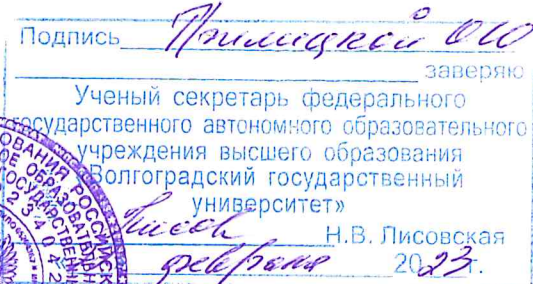 Подпись Прилицкой О Ю
заверяю
Ученый секретарь федерального
государственного автономного образовательного
учреждения высшего образования
«Волгоградский государственный
университет»
Н.В. Лисовская
февраля 2023г.